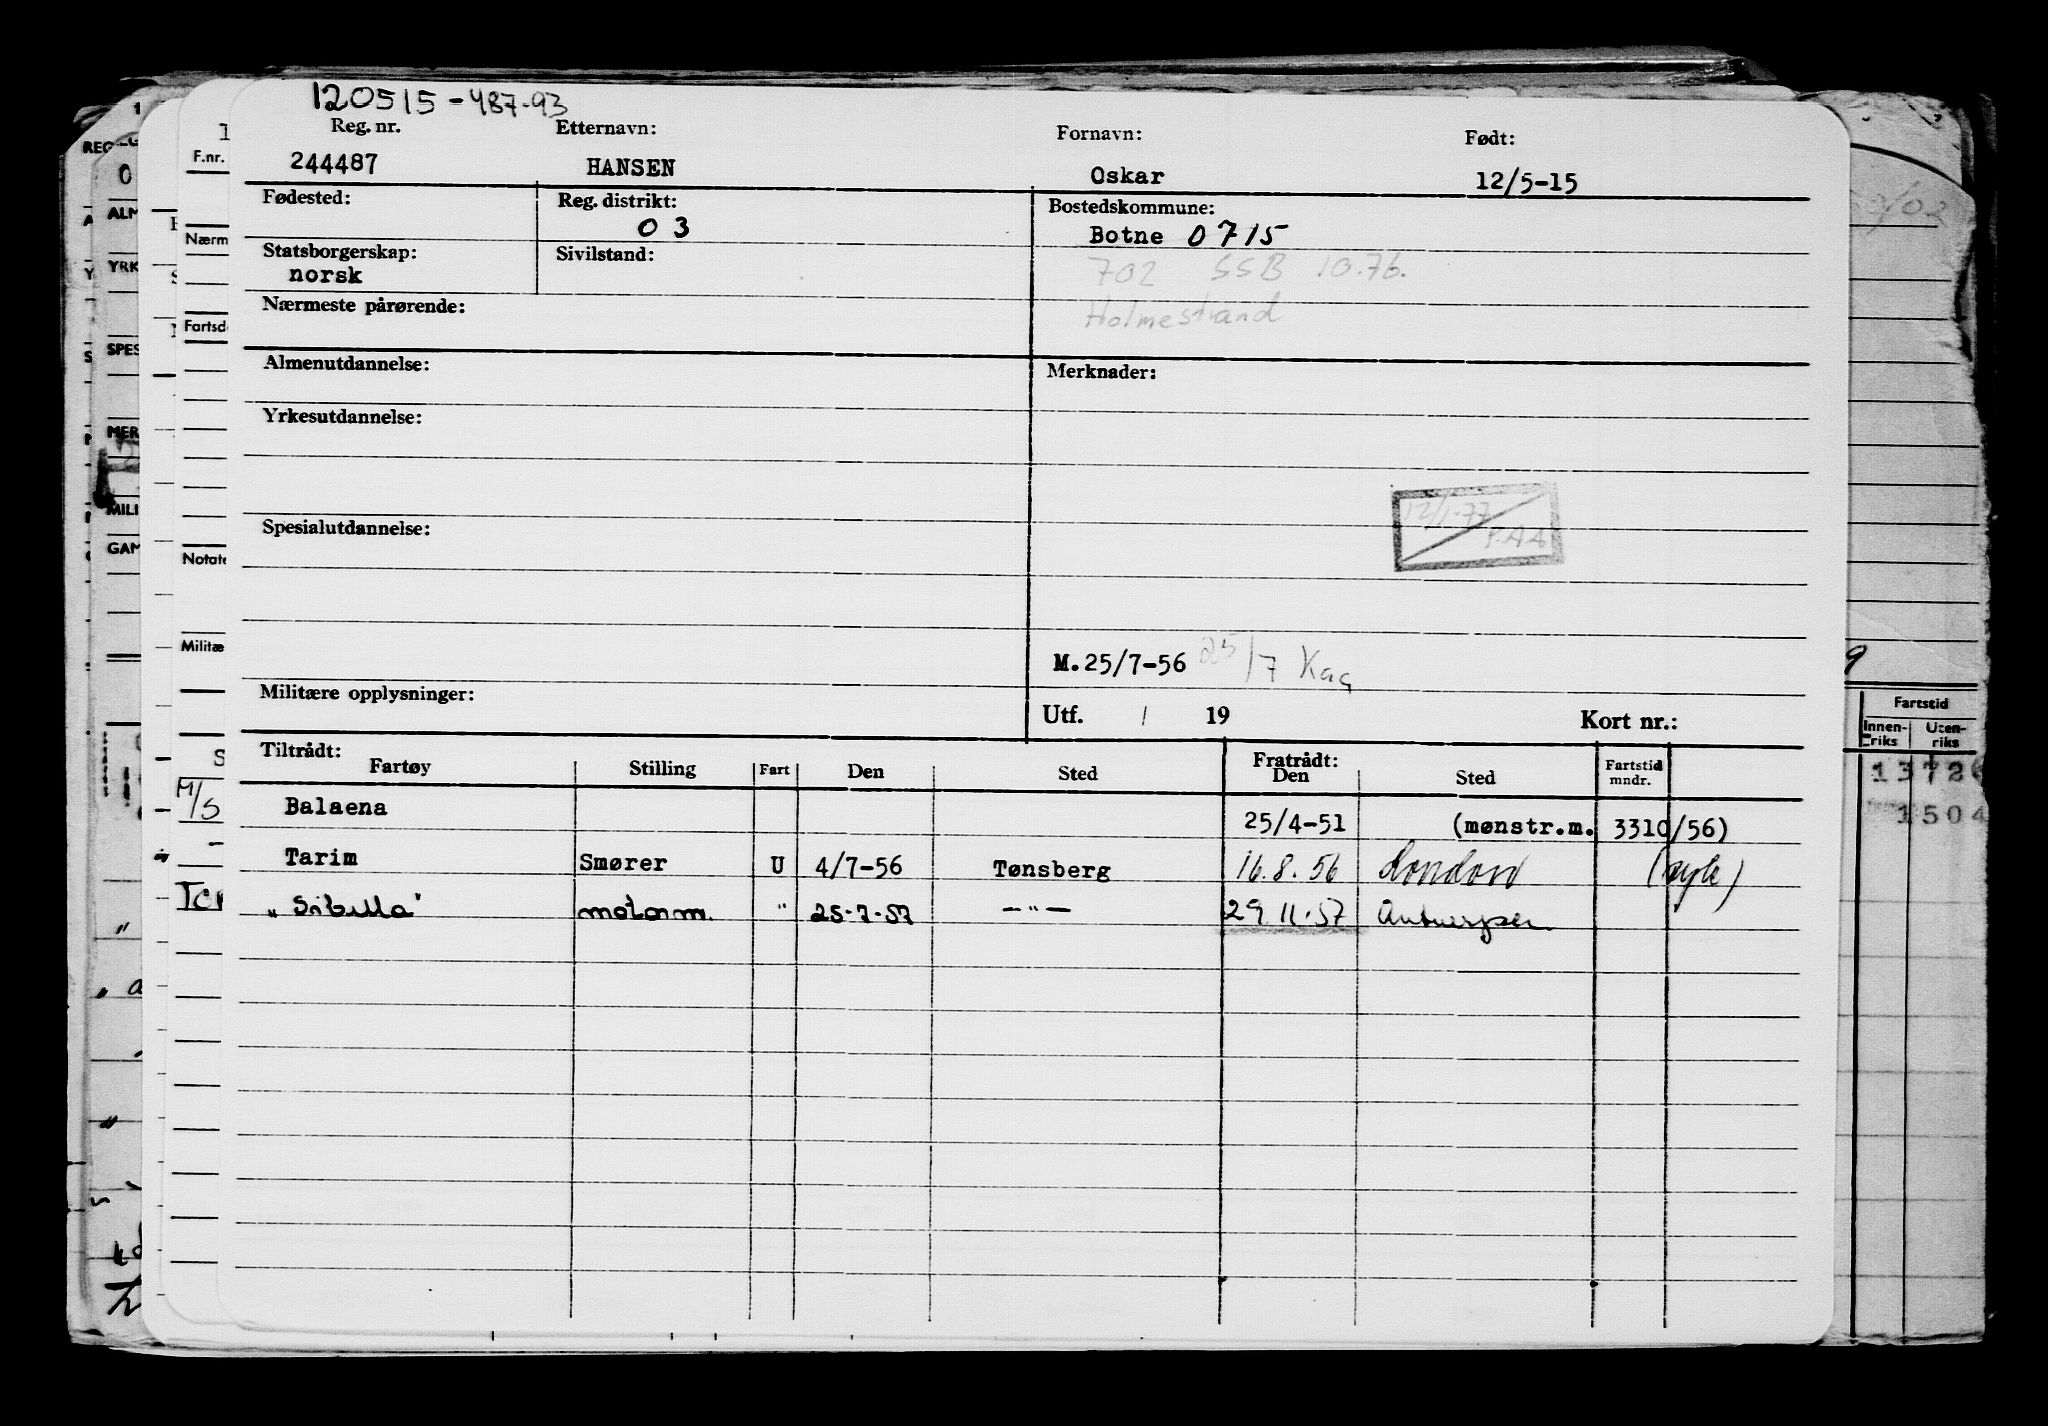 120515-487-93
Reg. nr. Etternavn: Fornavn: Født:
244487 HANSEN Oskar 12/5-15
Fødested: Reg. distrikt: Bostedskommune:
03 Botne 0715
Statsborgerskap: Sivilstand:
norsk 702 SSB 10.76.
Nærmeste pårørende: Holmestrand
Almenutdannelse: Merknader:
Yrkesutdannelse:
12/1-77
Spesialutdannelse:
M.25/7-56 25/7 Kag
Militære opplysninger:
Utf. / 19 Kort nr.:
Tiltrådt: Fratrådt:
Fartøy Stilling Fart Den Sted Den Sted Fartstid mndr.
Balaena 25/4-51 (mønstr.m. 3310/56)
Tarim Smører U 4/7-56 Tønsberg 16.8.56 London (syk)
"Sibella" motorm. " 25-7-57 -"- 29.11.57 Antwerpen
F.nr.
Nærm
Fartsd
Notate
Militæ
M/S
REG
ALM
YRK
SPES
MER
MILI
GAM
Fartstid
Innen-riks Uten-riks
1504